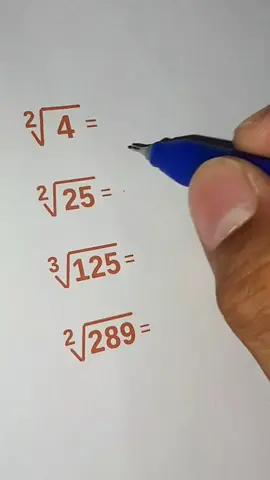 ²√4 =
²√25 =
³√125 =
²√289 =